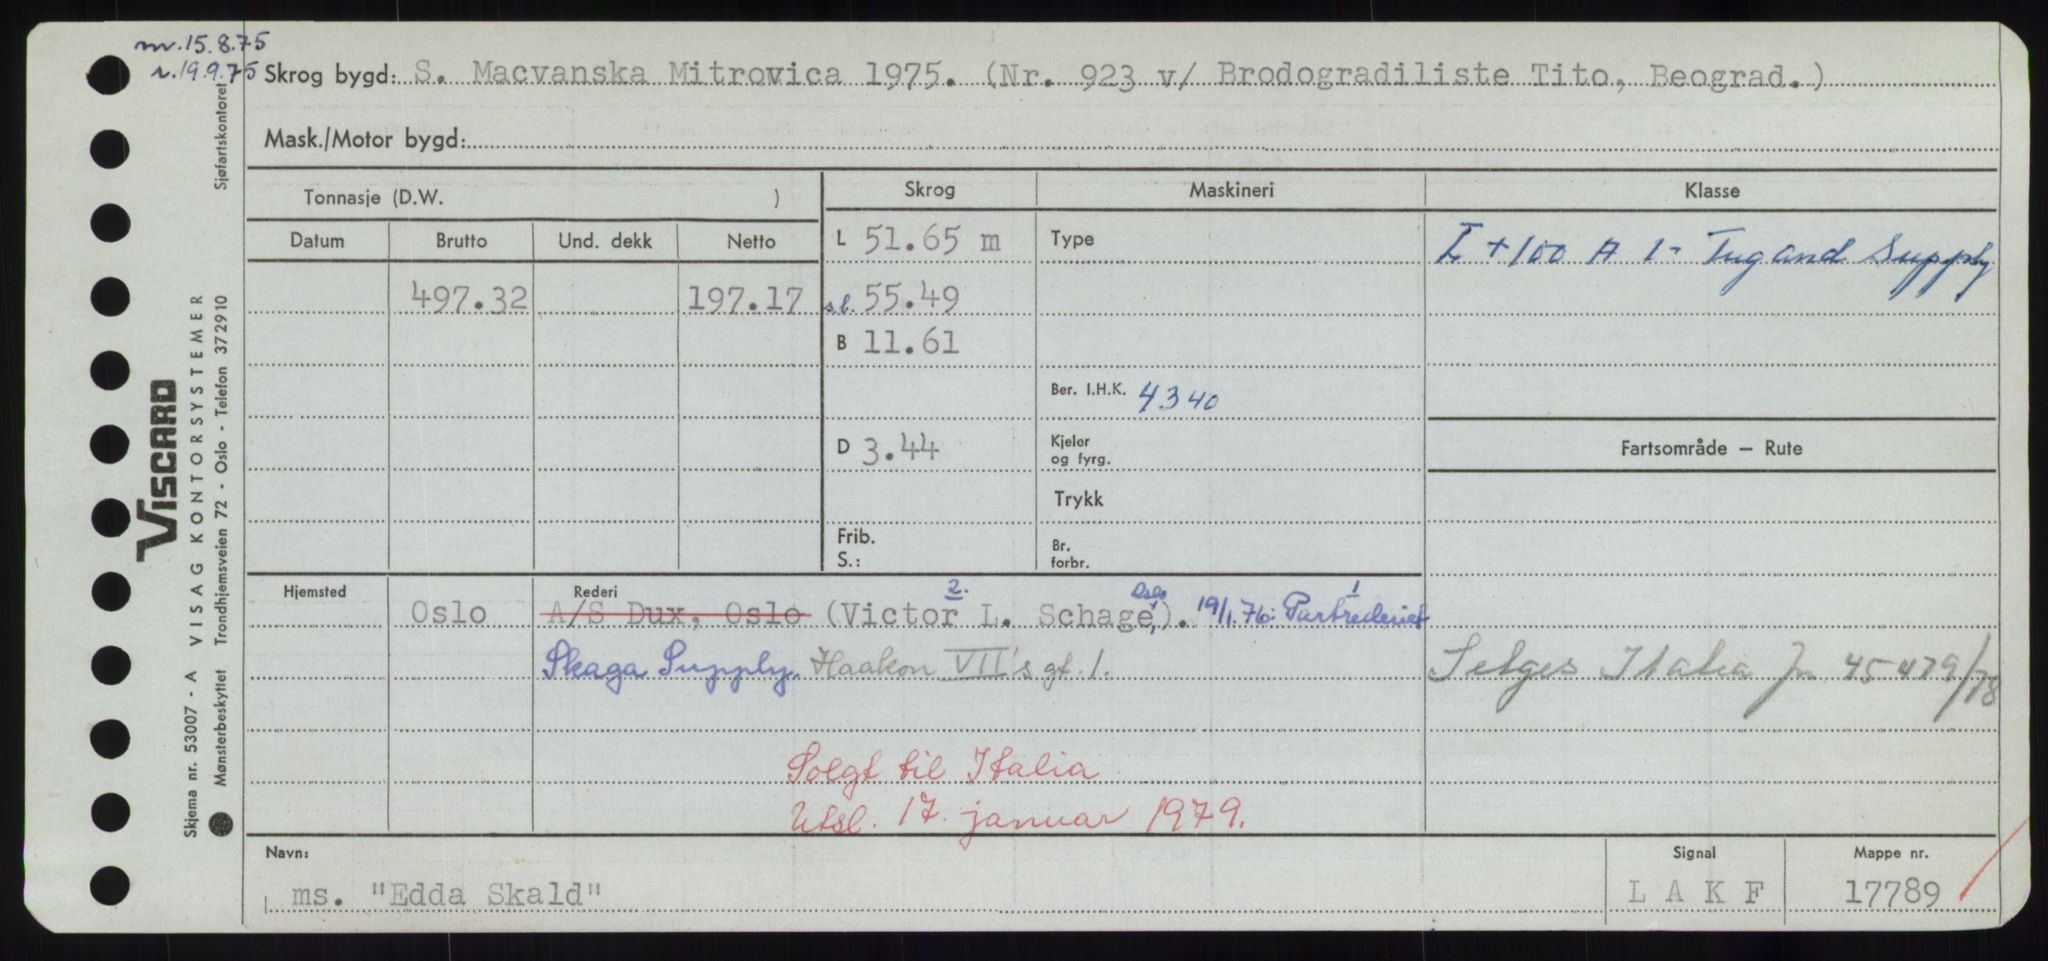 nv. 15.8.75
r. 19.9.75
Skrog bygd: S. Macvanska Mitrovica 1975. (Nr. 923 v/ Brodogradiliste Tito, Beograd.)
Mask./Motor bygd:
Tonnasje (D.W. )
Skrog
Maskineri
Klasse
Datum
Brutto
Und. dekk
Netto
L 51.65 m
Type
I +100 A 1- Tug and Supply
497.32
197.17
sl. 55.49
B 11.61
Ber. I.H.K. 4340
D 3.44
Kjeler
og fyrg.
Fartsområde — Rute
Trykk
Frib.
S.:
Br.
forbr.
Hjemsted
Rederi
2.
Oslo
1
Oslo
A/S Dux, Oslo (Victor L. Schage,). 19/1.76: Partrederiet
Skaga Supply. Haakon VII's gt. 1.
Selges Italia Jn. 45479/78
Solgt til Italia
Utsl. 17. januar 1979.
Navn:
Signal
Mappe nr.
ms. "Edda Skald"
L A K F
17789
VISCARD
Skjema nr. 53007 - A VISAG KONTORSYSTEMER
Mønsterbeskyttet Trondhjemsveien 72 - Oslo - Telefon 372910 Sjøfartskontoret